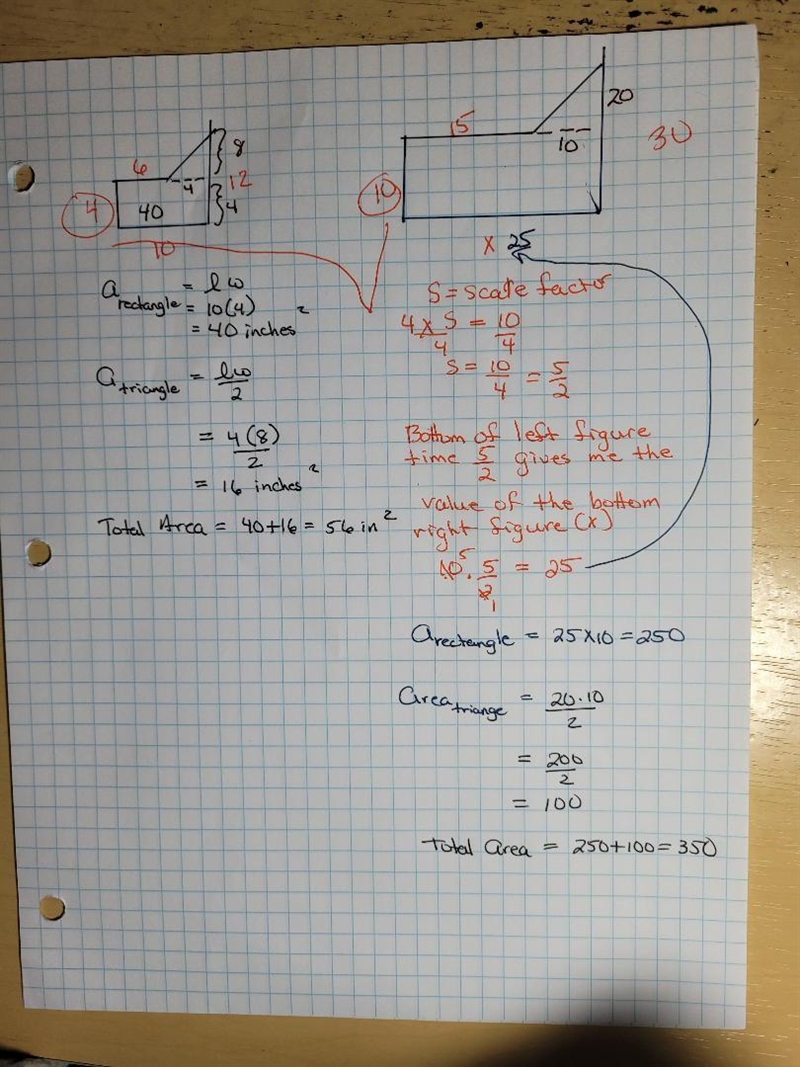 6
8
4
12
4
40
4
10
15
20
10
30
10
x 25
a rectangle = lw
= 10(4)
= 40 inches²
a triangle = lw/2
= 4(8)/2
= 16 inches²
Total Area = 40+16 = 56 in²
S = scale factor
4 x S/4 = 10/4
S = 10/4 = 5/2
Bottom of left figure
time 5/2 gives me the
value of the bottom
right figure (x)
10 5 · 5/2 1 = 25
a rectangle = 25x10 = 250
Area triange = 20·10/2
= 200/2
= 100
Total area = 250+100 = 350